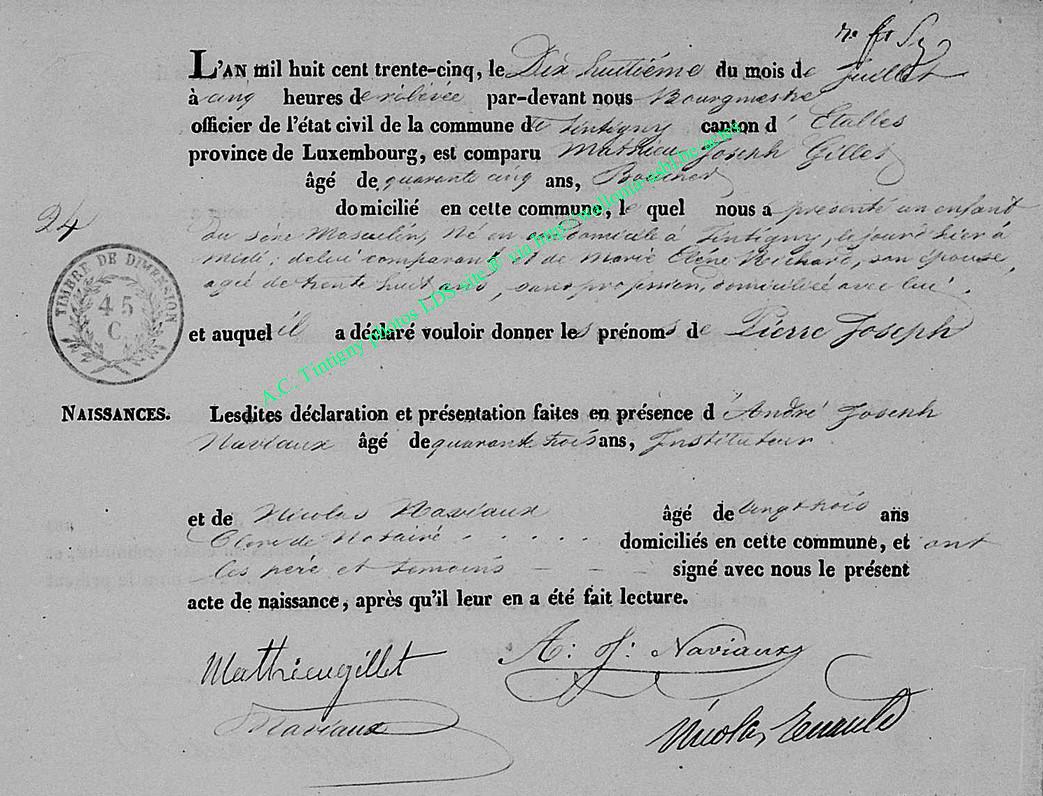 L'AN mil huit cent trente-cinq, le Dix huitiéme du mois de Juillet
à cinq heures de rélévée par-devant nous Bourgmestre
officier de l'état civil de la commune de Tintigny canton d' Etalles
province de Luxembourg, est comparu Mathieu Joseph Gillet
âgé de quarante cinq ans,
domicilié en cette commune, le quel nous a présenté un enfant
24
du séxe Masculin, Né en son domicile à Tintigny, le jour d'hier à
midi, de lui comparant et de Marie Elene Richard, son épouse,
agée de trente huit ans, sans profession, domiciliée avec lui.
TIMBRE DE DIMENSION
45
C.
et auquel il a déclaré vouloir donner les prénoms de Pierre Joseph
A.C. Tintigny photos LDS site & via http://wallonia-asbl.be/actes
NAISSANCES. Lesdites déclaration et présentation faites en présence d' André Joseph
Naviaux âgé de quarante trois ans, Instituteur.
et de Nicolas Naviaux âgé de vingt trois ans
Clerc de Notaire domiciliés en cette commune, et ont
les pére et temoins signé avec nous le présent
acte de naissance, après qu'il leur en a été fait lecture.
Mathieu gillet A: J: Naviaux
Naviaux Nicolas